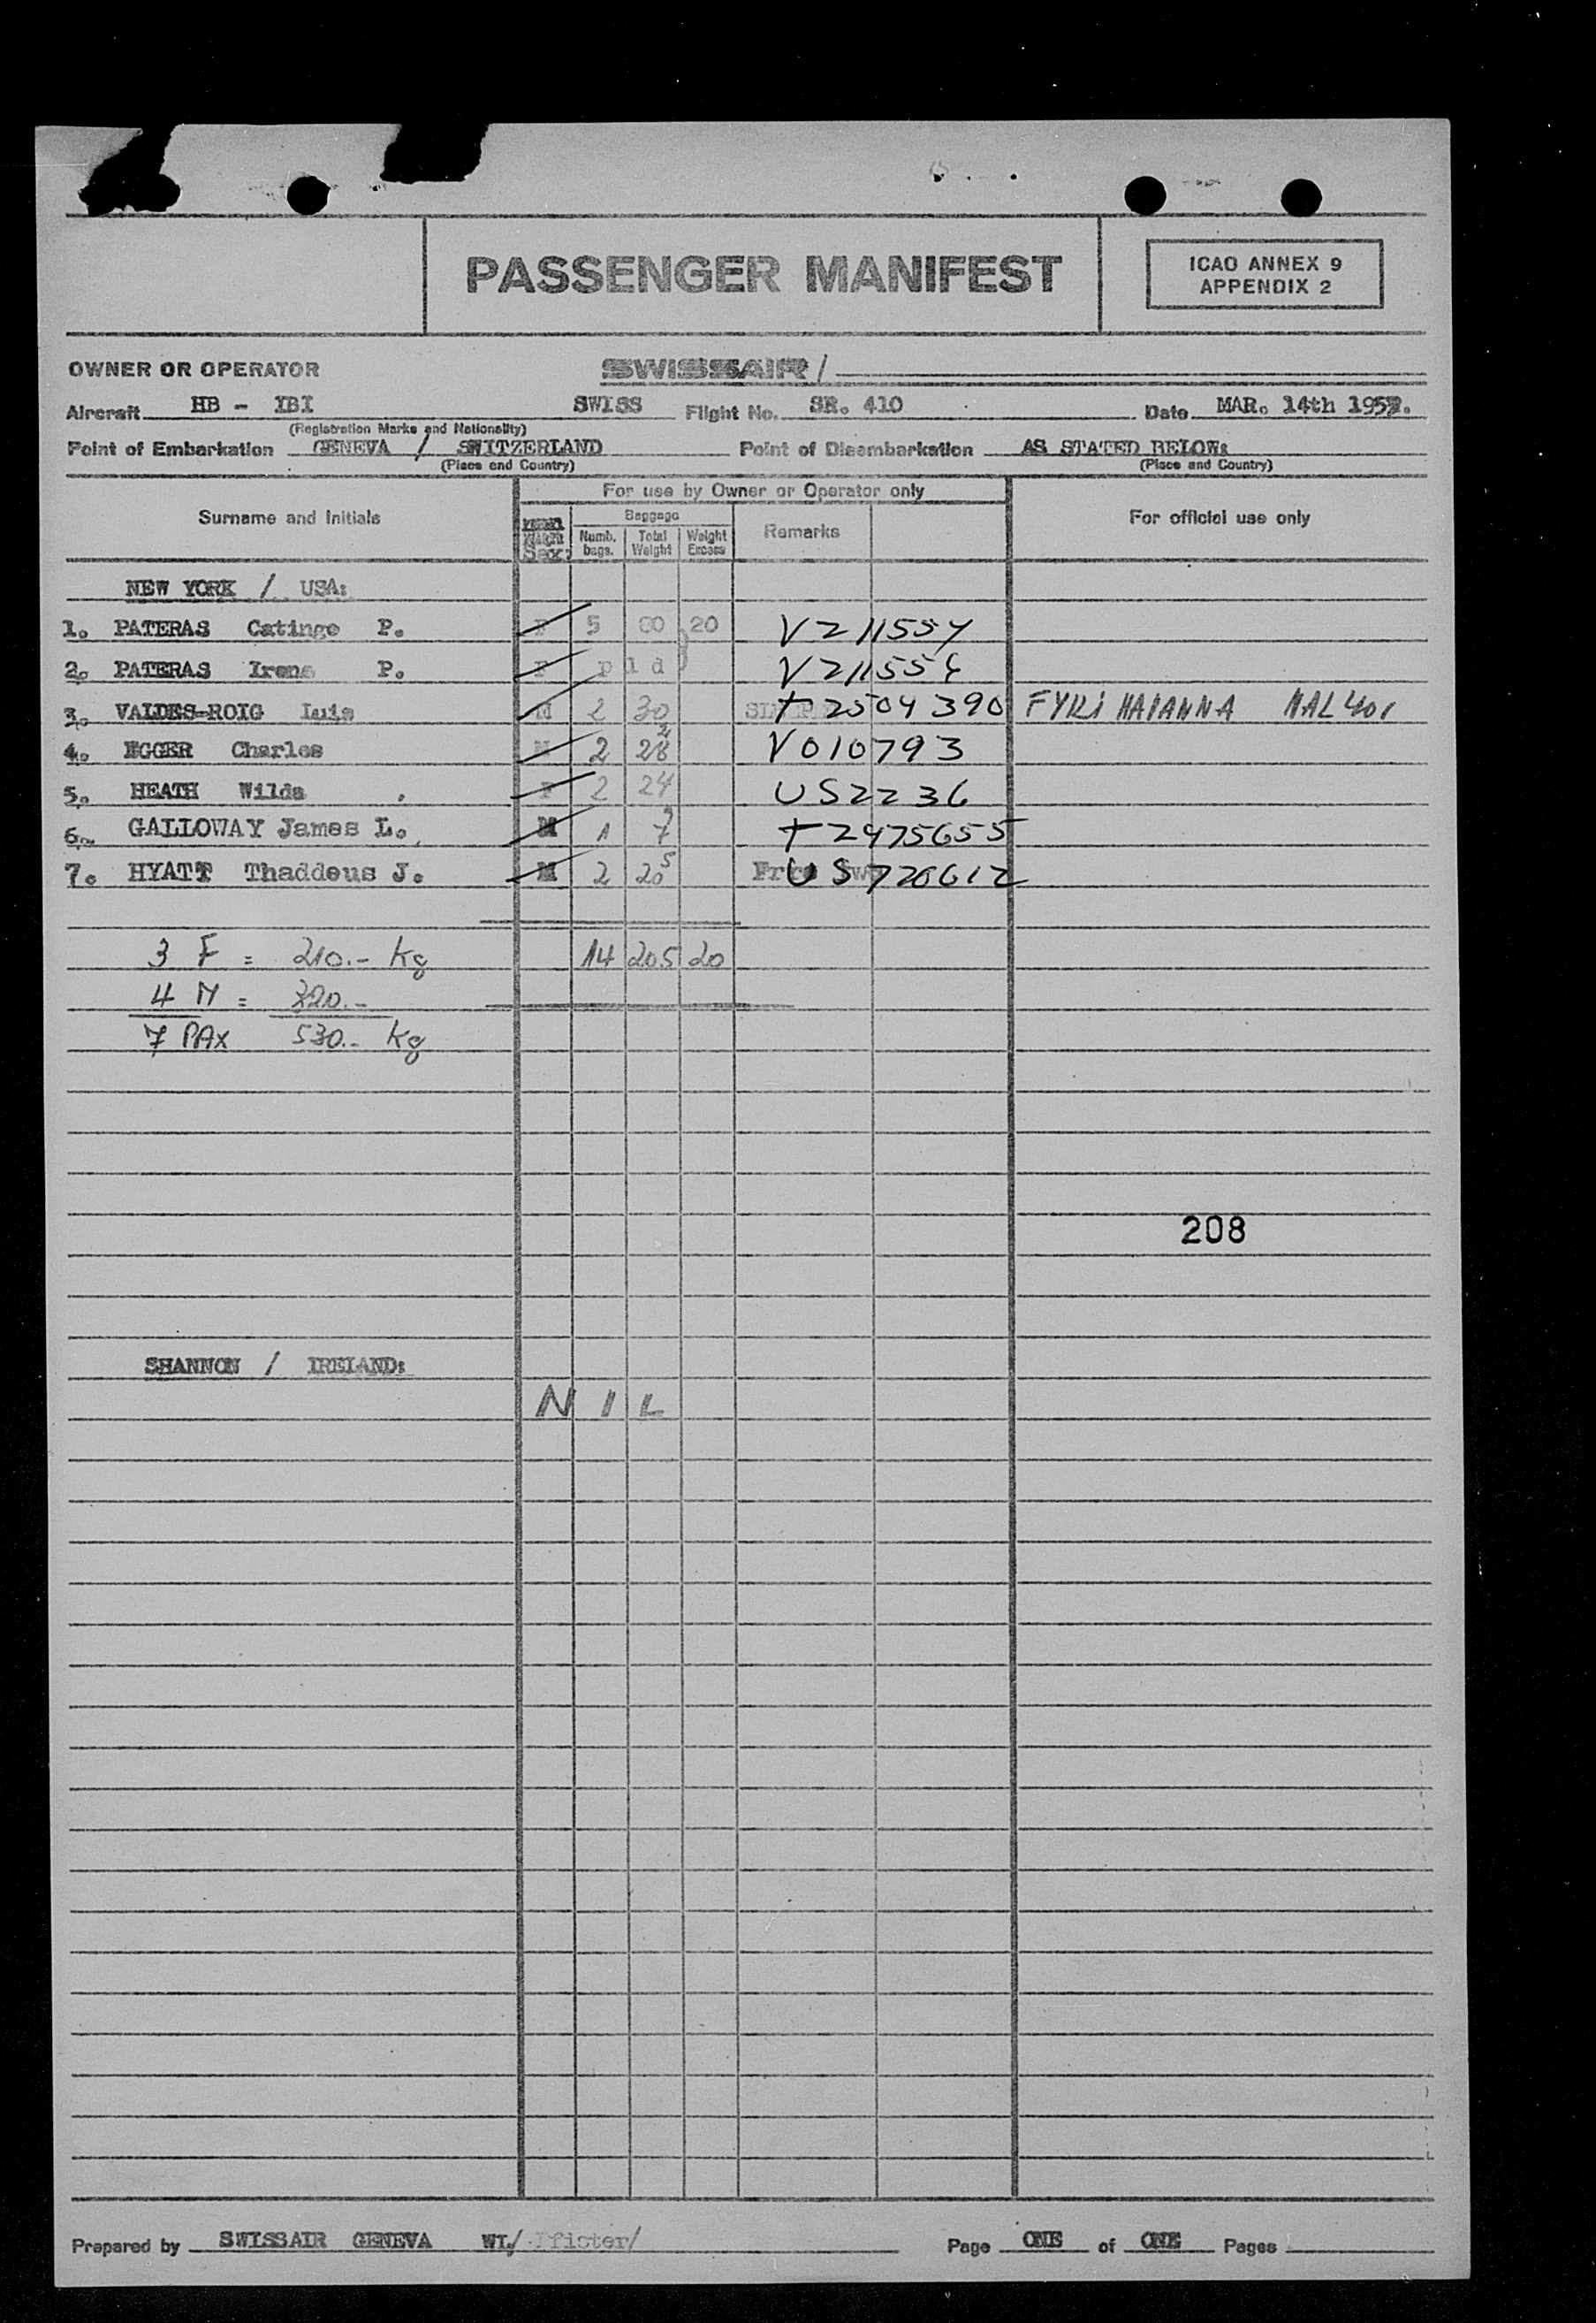 PASSENGER MANIFEST
ICAO ANNEX 9
APPENDIX 2
OWNER OR OPERATOR SWISSAIR/
Aircraft HB - IBI SWISS Flight No. SR. 410 Date MAR. 14th 1957.
(Registration Marks and Nationality)
Point of Embarkation GENEVA / SWITZERLAND Point of Disembarkation AS STATED BELOW:
(Place and Country) (Place and Country)
For use by Owner or Operator only
Surname and Initials Sex: Baggage Remarks For official use only
Numb. bags. Total Weight Weight Excess
NEW YORK / USA:
1. PATERAS Catingo P. F 5 20 V211557
2. PATERAS Irene P. F p l d V211556
3. VALDES-ROIG Luis M 2 30 T2504390 FYRI NAL401
4. EGGER Charles M 2 28 V010793
5. HEATH Wilda F 2 24 US2236
6. GALLOWAY James L. M 1 7 T2975655
7. HYATT Thaddeus J. M 2 20 US720612
3 F = 210.- Kg 14 205 20
4 M = 320.-
7 PAX 530.- Kg
208
SHANNON / IRELAND:
N I L
Prepared by SWISSAIR GENEVA WL/ Pfister/ Page ONE of ONE Pages